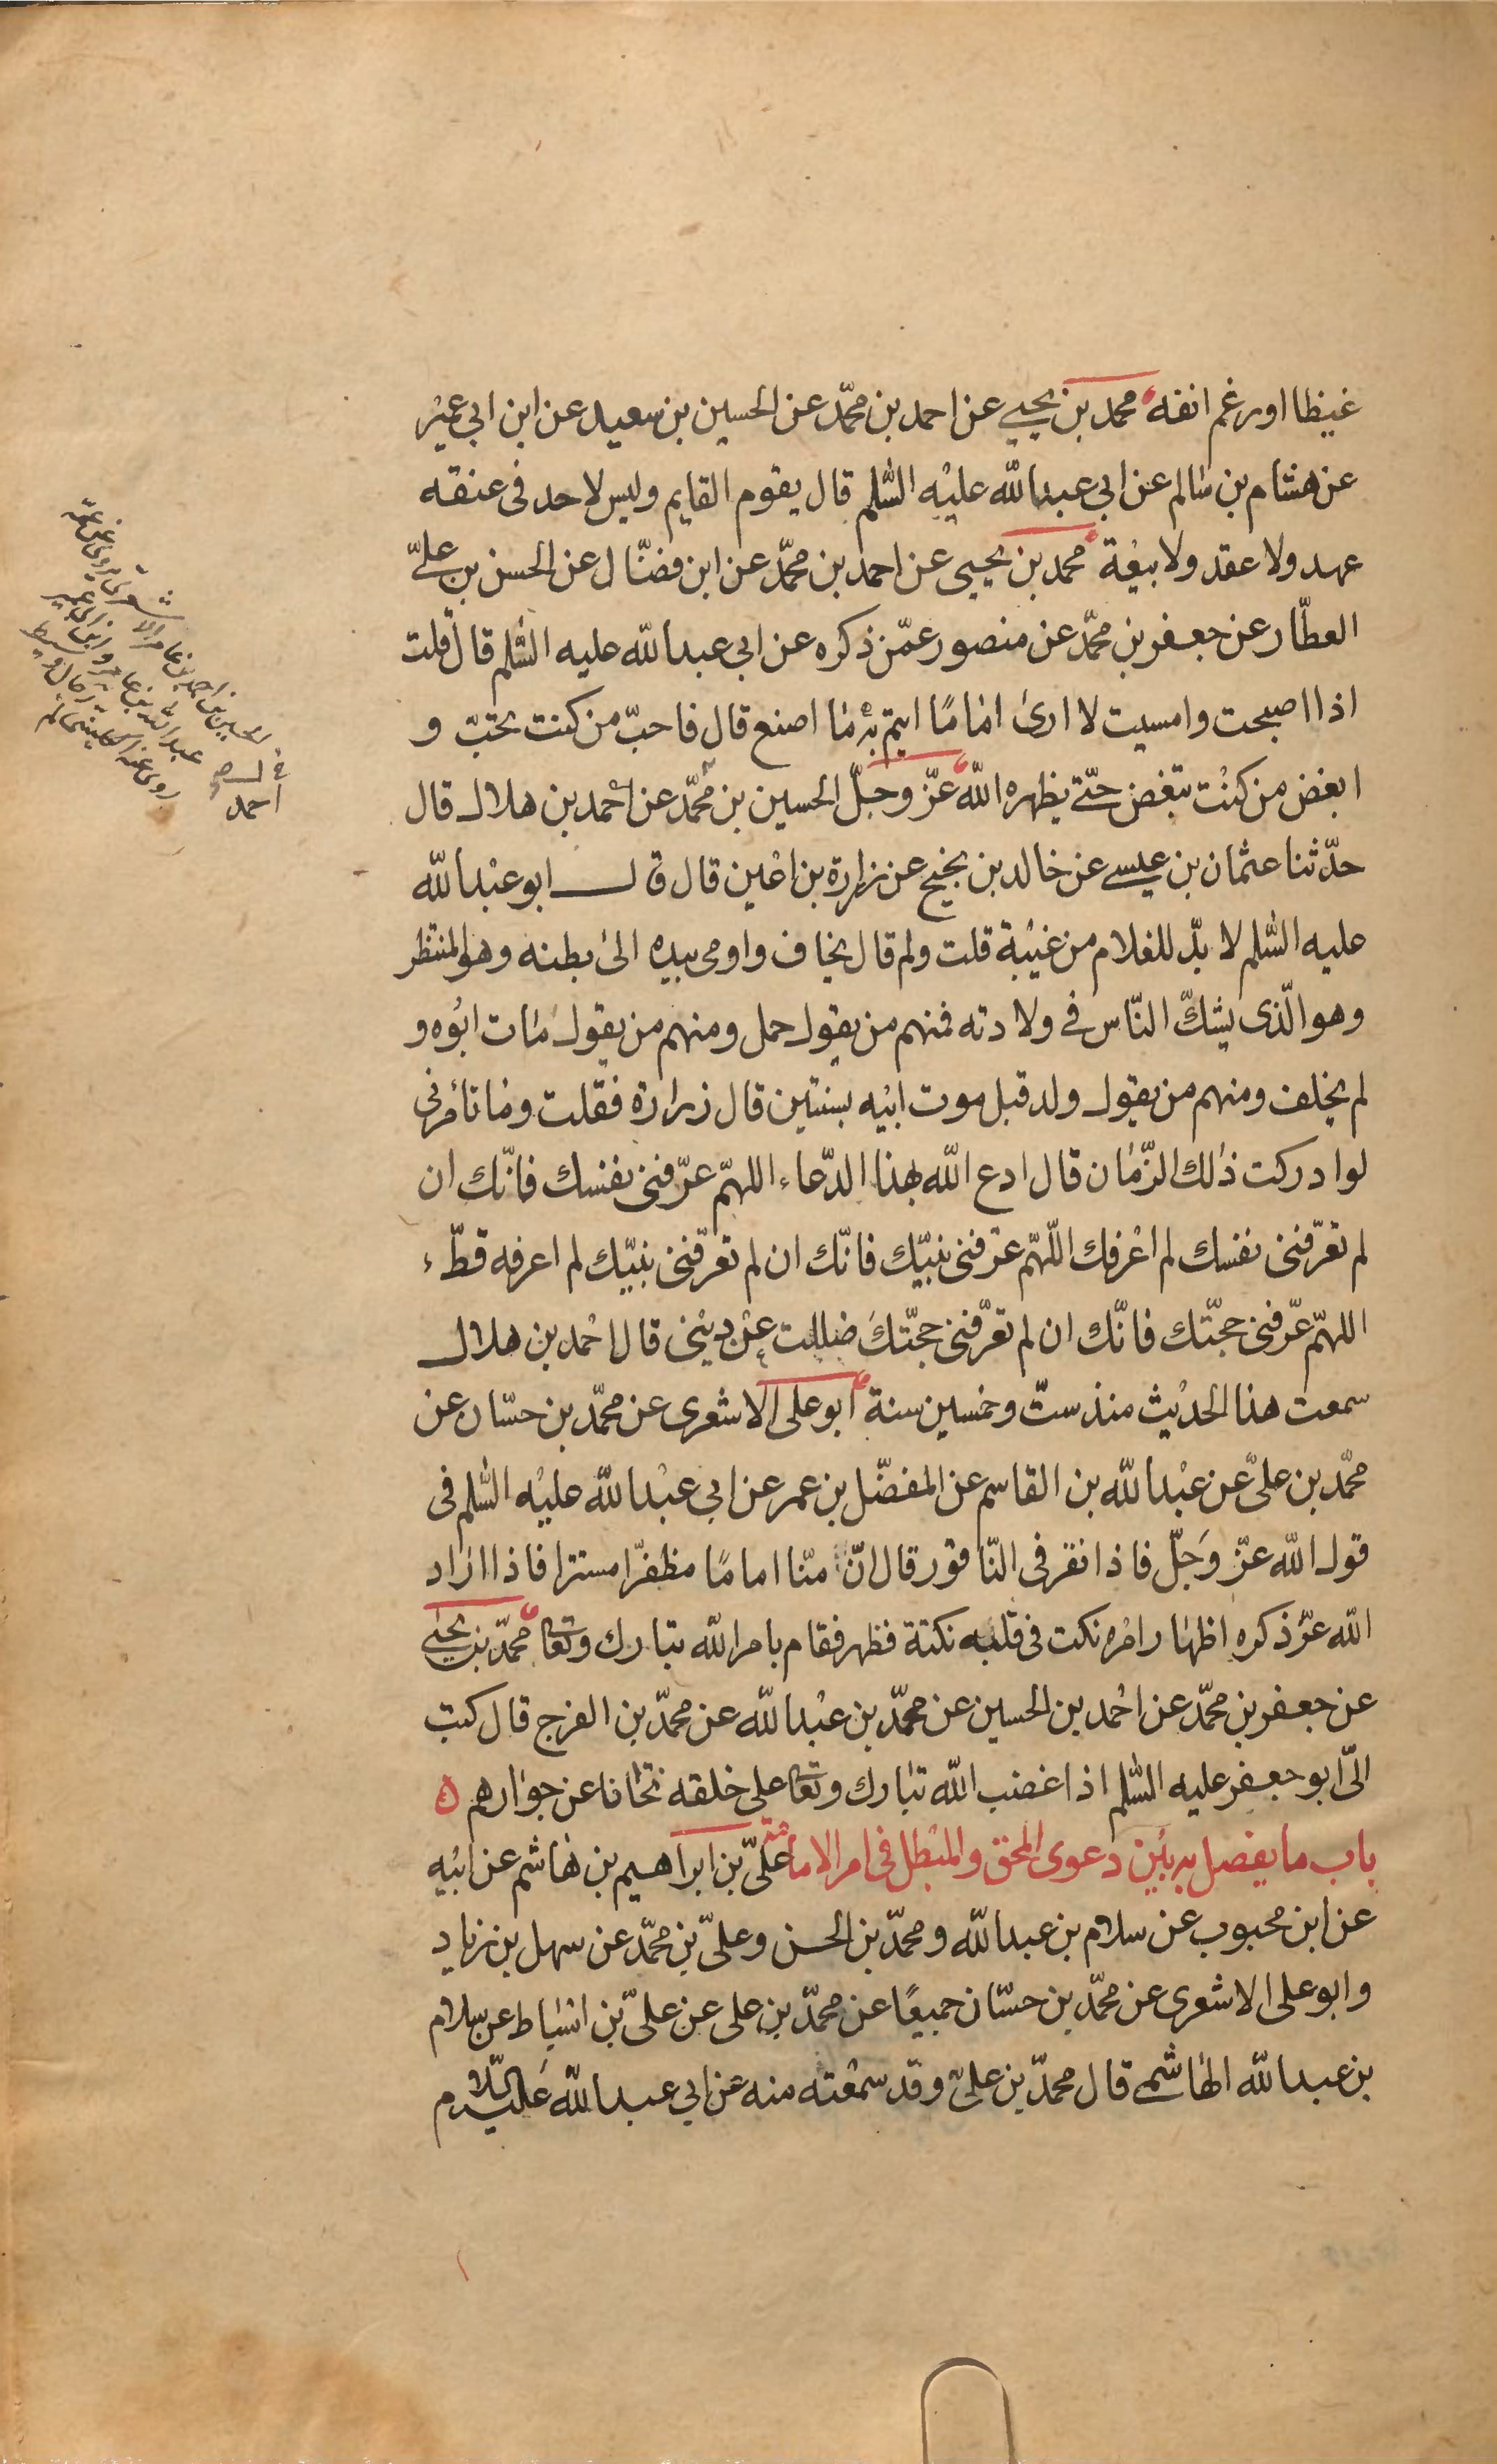 غيظا او رغم انفه محمد بن يحيى عن احمد بن محمّد عن الحسين بن سعيد عن ابن ابي عمير
عن هشام بن سالم عن ابي عبد الله عليه السّلم قال يقوم القايم وليس لاحد في عنقه
عهد ولا عقد ولا بيعة محمد بن يحيى عن احمد بن محمّد عن ابن فضّال عن الحسن بن علىّ
العطّار عن جعفر بن محمّد عن منصور عمّن ذكره عن ابي عبد الله عليه السّلم قال قلت
اذا اصبحت وامسيت لا ارى امامًا ايتم به ما اصنع قال فاحبّ من كنت تحبّ و
ابغض من كنت تبغض حتّى يظهره الله عزّ وجلّ الحسين بن محمّد عن احمد بن هلال قال
حدّثنا عثمان بن عيسى عن خالد بن نجيح عن زرارة بن اعين قال قال ابو عبد الله
عليه السّلم لا بدّ للغلام من غيبة قلت ولم قال يخاف واومى بيده الى بطنه وهو المنتظر
وهو الّذى يشكّ النّاس فى ولادته فمنهم من يقول حمل ومنهم من يقول مات ابوه و
لم يخلف ومنهم من يقول ولد قبل موت ابيه بسنتين قال زرارة فقلت وما تأمرنى
لو ادركت ذلك الزّمان قال ادع الله بهذا الدّعاء اللهمّ عرّفنى نفسك فانّك ان
لم تعرّفنى نفسك لم اعرفك اللّهمّ عرّفنى نبيّك فانّك ان لم تعرّفنى نبيّك لم اعرفه قطّ
اللهمّ عرّفنى حجّتك فانّك ان لم تعرّفنى حجّتك ضللت عن دينى قال احمد بن هلال
سمعت هذا الحديث منذ ستّ وخمسين سنة ابو على الاشعرى عن محمّد بن حسّان عن
محمّد بن علىّ عن عبد الله بن القاسم عن المفضّل بن عمر عن ابي عبد الله عليه السّلم فى
قول الله عزّ وجلّ فاذا نقر فى النّاقور قال انّ منّا امامًا مظفّرا مستترا فاذا اراد
الله عزّ ذكره اظهار امره نكت فى قلبه نكتة فظهر فقام بامر الله تبارك وتعا محمّد بن يحيى
عن جعفر بن محمّد عن احمد بن الحسين عن محمّد بن عبد الله عن محمّد بن الفرج قال كتب
الىّ ابو جعفر عليه السّلم اذا غضب الله تبارك وتعا على خلقه نحّانا عن جوارهم
باب ما يفصل به بين دعوى المحق والمبطل فى امر الامامة علىّ بن ابراهيم بن هاشم عن ابيه
عن ابن محبوب عن سلام بن عبد الله ومحمّد بن الحسن وعلىّ بن محمّد عن سهل بن زياد
وابو على الاشعرى عن محمّد بن حسّان جميعًا عن محمّد بن على عن علىّ بن اسباط عن سلام
بن عبد الله الهاشمى قال محمّد بن علىّ وقد سمعته منه عن ابي عبد الله عليه السّلام
الحسين بن احمد بن عامر الاشعرى يروى عن عمّه
عبد الله بن عامر وابن ابي عمير
روى عنه الكلينى
احمد